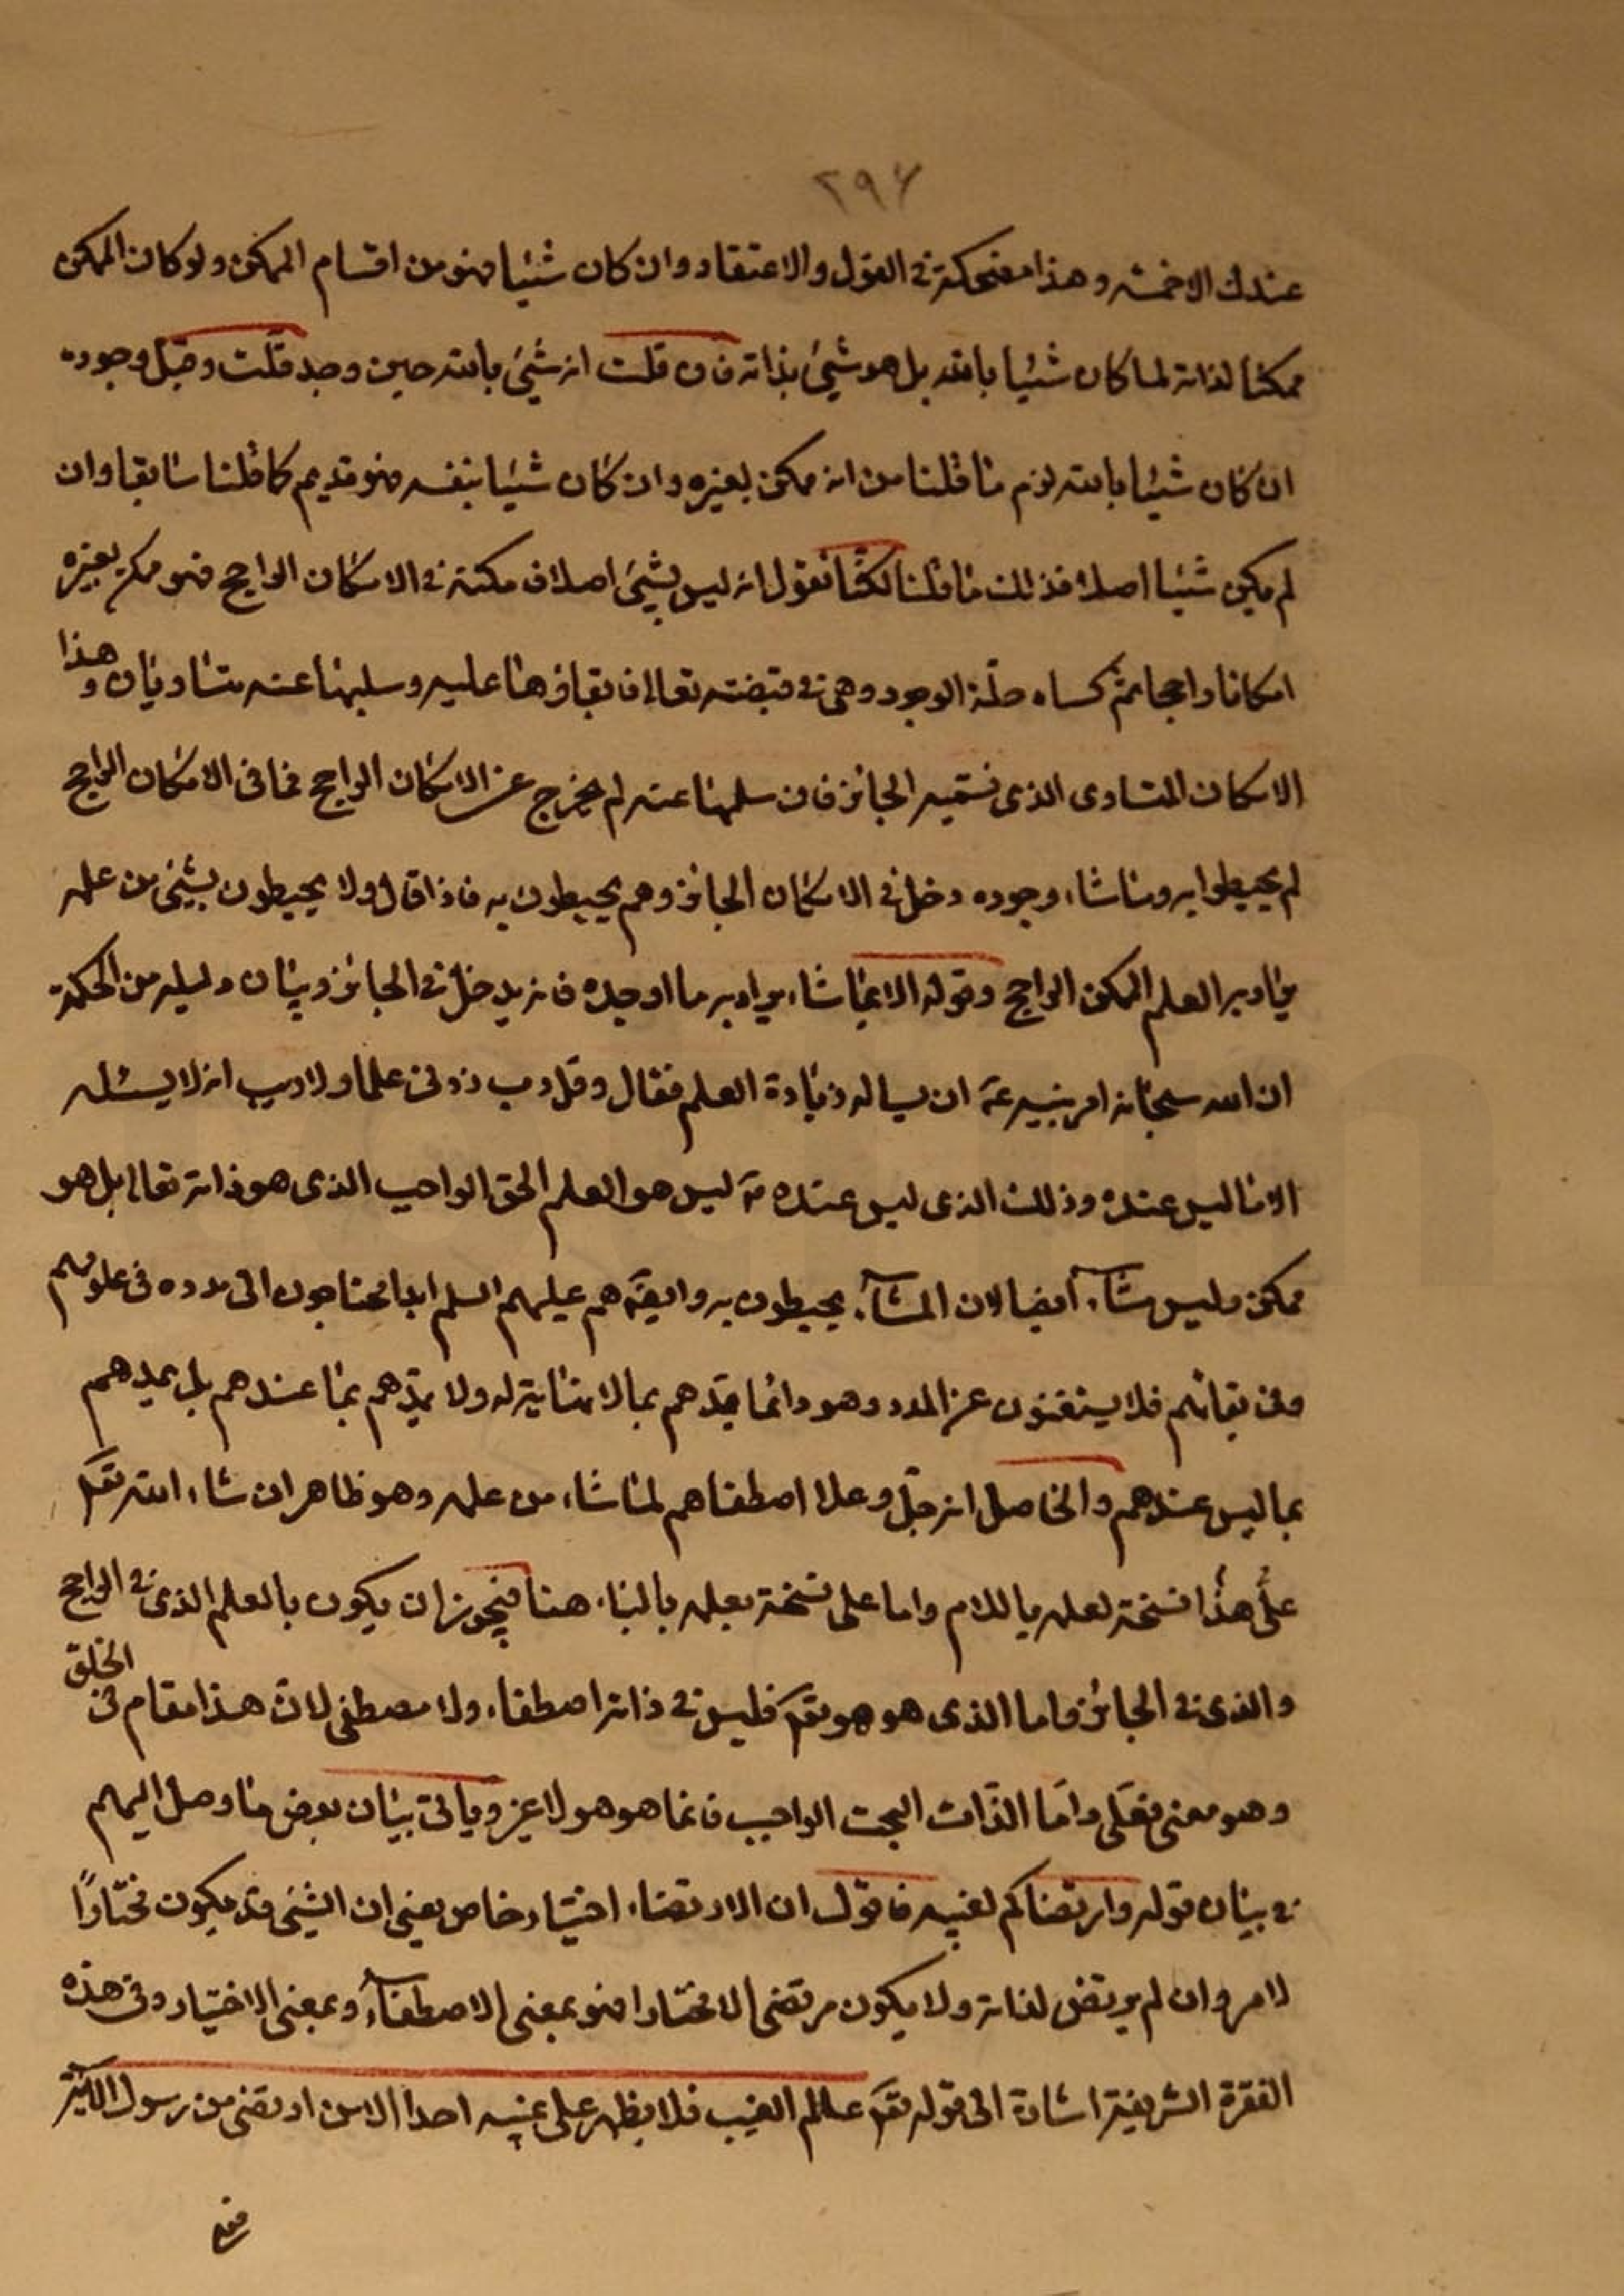 ٢٩٦
عندك الاخمسة وهذا مضحكة في القول والاعتقاد وان كان شيئا فهو من اقسام الممكن ولو كان الممكن
ممكنا لذاته لما كان شيئا بالله بل هو شيئ بذاته فان قلت انه شيئ بالله حين وجد قلت وقبل وجوده
ان كان شيئا بالله لزم ما قلنا من انه ممكن بغيره وان كان شيئا بنفسه فهو قديم كما قلنا سابقا وان
لم يكن شيئا اصلا فذلك ما قلنا لكنا نقول انه ليس بشيئ اصلا فمكنه في الامكان الراجح فهو ممكن بغيره
امكانا راجحا ثم كساه حلة الوجود وهي في قبضته تعالى فابقاؤها عليه وسلبها عنه متساويان وهذا
الامكان المتساوى الذى نسميه الجائز فان سلبها عنه لم يخرج عن الامكان الراجح فما في الامكان الراجح
لم يحيطوا به وما شاء وجوده دخل في الامكان الجائز وهم يحيطون به فاذا قال ولا يحيطون بشيئ من علمه
يراد به العلم الممكن الراجح وقوله الا بما شاء يراد به ما اوجده فانه يدخل في الجائز وبيان دليله من الحكمة
ان الله سبحانه امر نبيه ص ان يساله زيادة العلم فقال وقل رب زدنى علما ولا ريب انه لا يسئله
الا ما ليس عنده وذلك الذى ليس عنده ليس هو العلم الحق الواجب الذى هو ذاته تعالى بل هو
ممكن وليس مشآء ايضا لان المشآء يحيطون به وايضا هم عليهم السلم ابدا محتاجون الى مدده في علومهم
وفي بقائهم فلا يستغنون عن المدد وهو دائما يمدهم بما لا نهاية له ولا يمدهم بما عندهم بل يمدهم
بما ليس عندهم والحاصل انه جل وعلا اصطفاهم لما شاء من علمه وهو ظاهر ان شاء الله تعالى
على هذا نسخة لعلمه باللام واما على نسخة بعلمه بالباء هنا فيجوز ان يكون بالعلم الذى في الراجح
والذى في الجائز واما الذى هو هو تعالى فليس في ذاته اصطفاء ولا مصطفى لان هذا مقام في الخلق
وهو معنى فعلى واما الذات البحت الواجب فانما هو هو لا غير وياتى بيان بعض ما وصل اليهم
في بيان قوله وارتضاكم لغيبه فاقول ان الارتضاء اختيار خاص يعنى ان الشيئ قد يكون مختارًا
لامر وان لم يرتض لذاته ولا يكون مرتضى الا مختارا فهو بمعنى الاصطفآء وبمعنى الاختيار وفي هذه
الفقرة الشريفة اشارة الى قوله تعالى عالم الغيب فلا يظهر على غيبه احدا الا من ارتضى من رسول